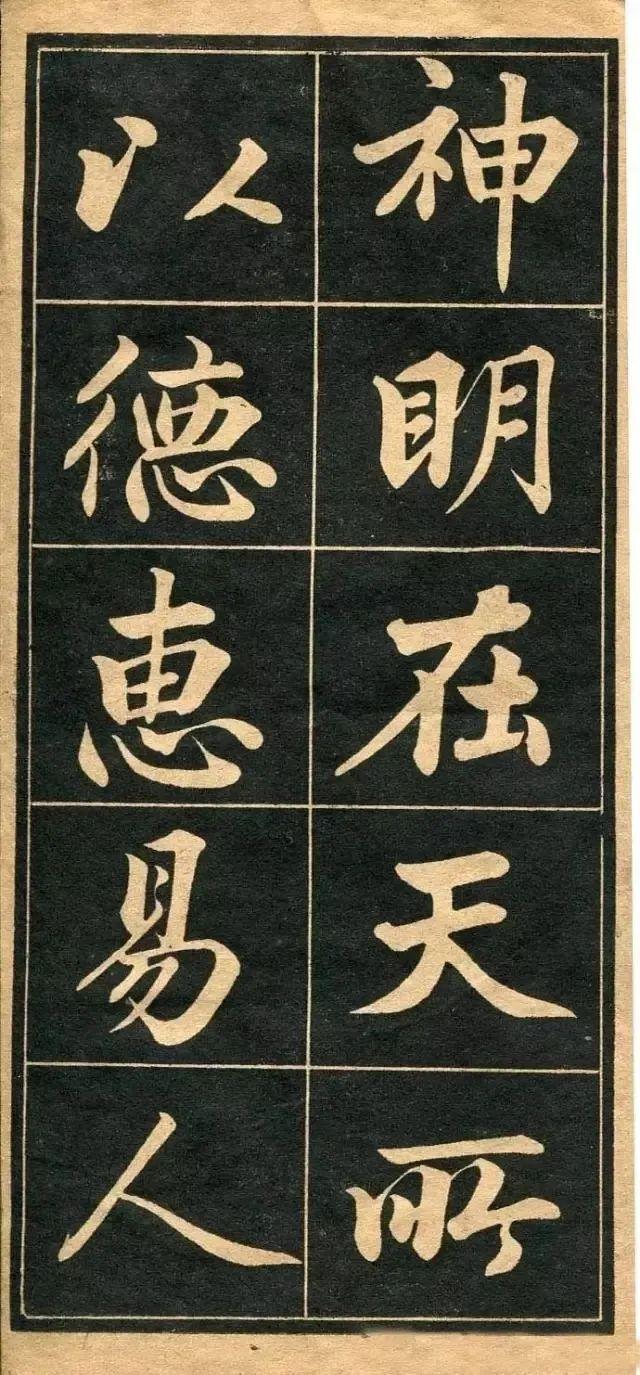 神明在天所
以德惠易人